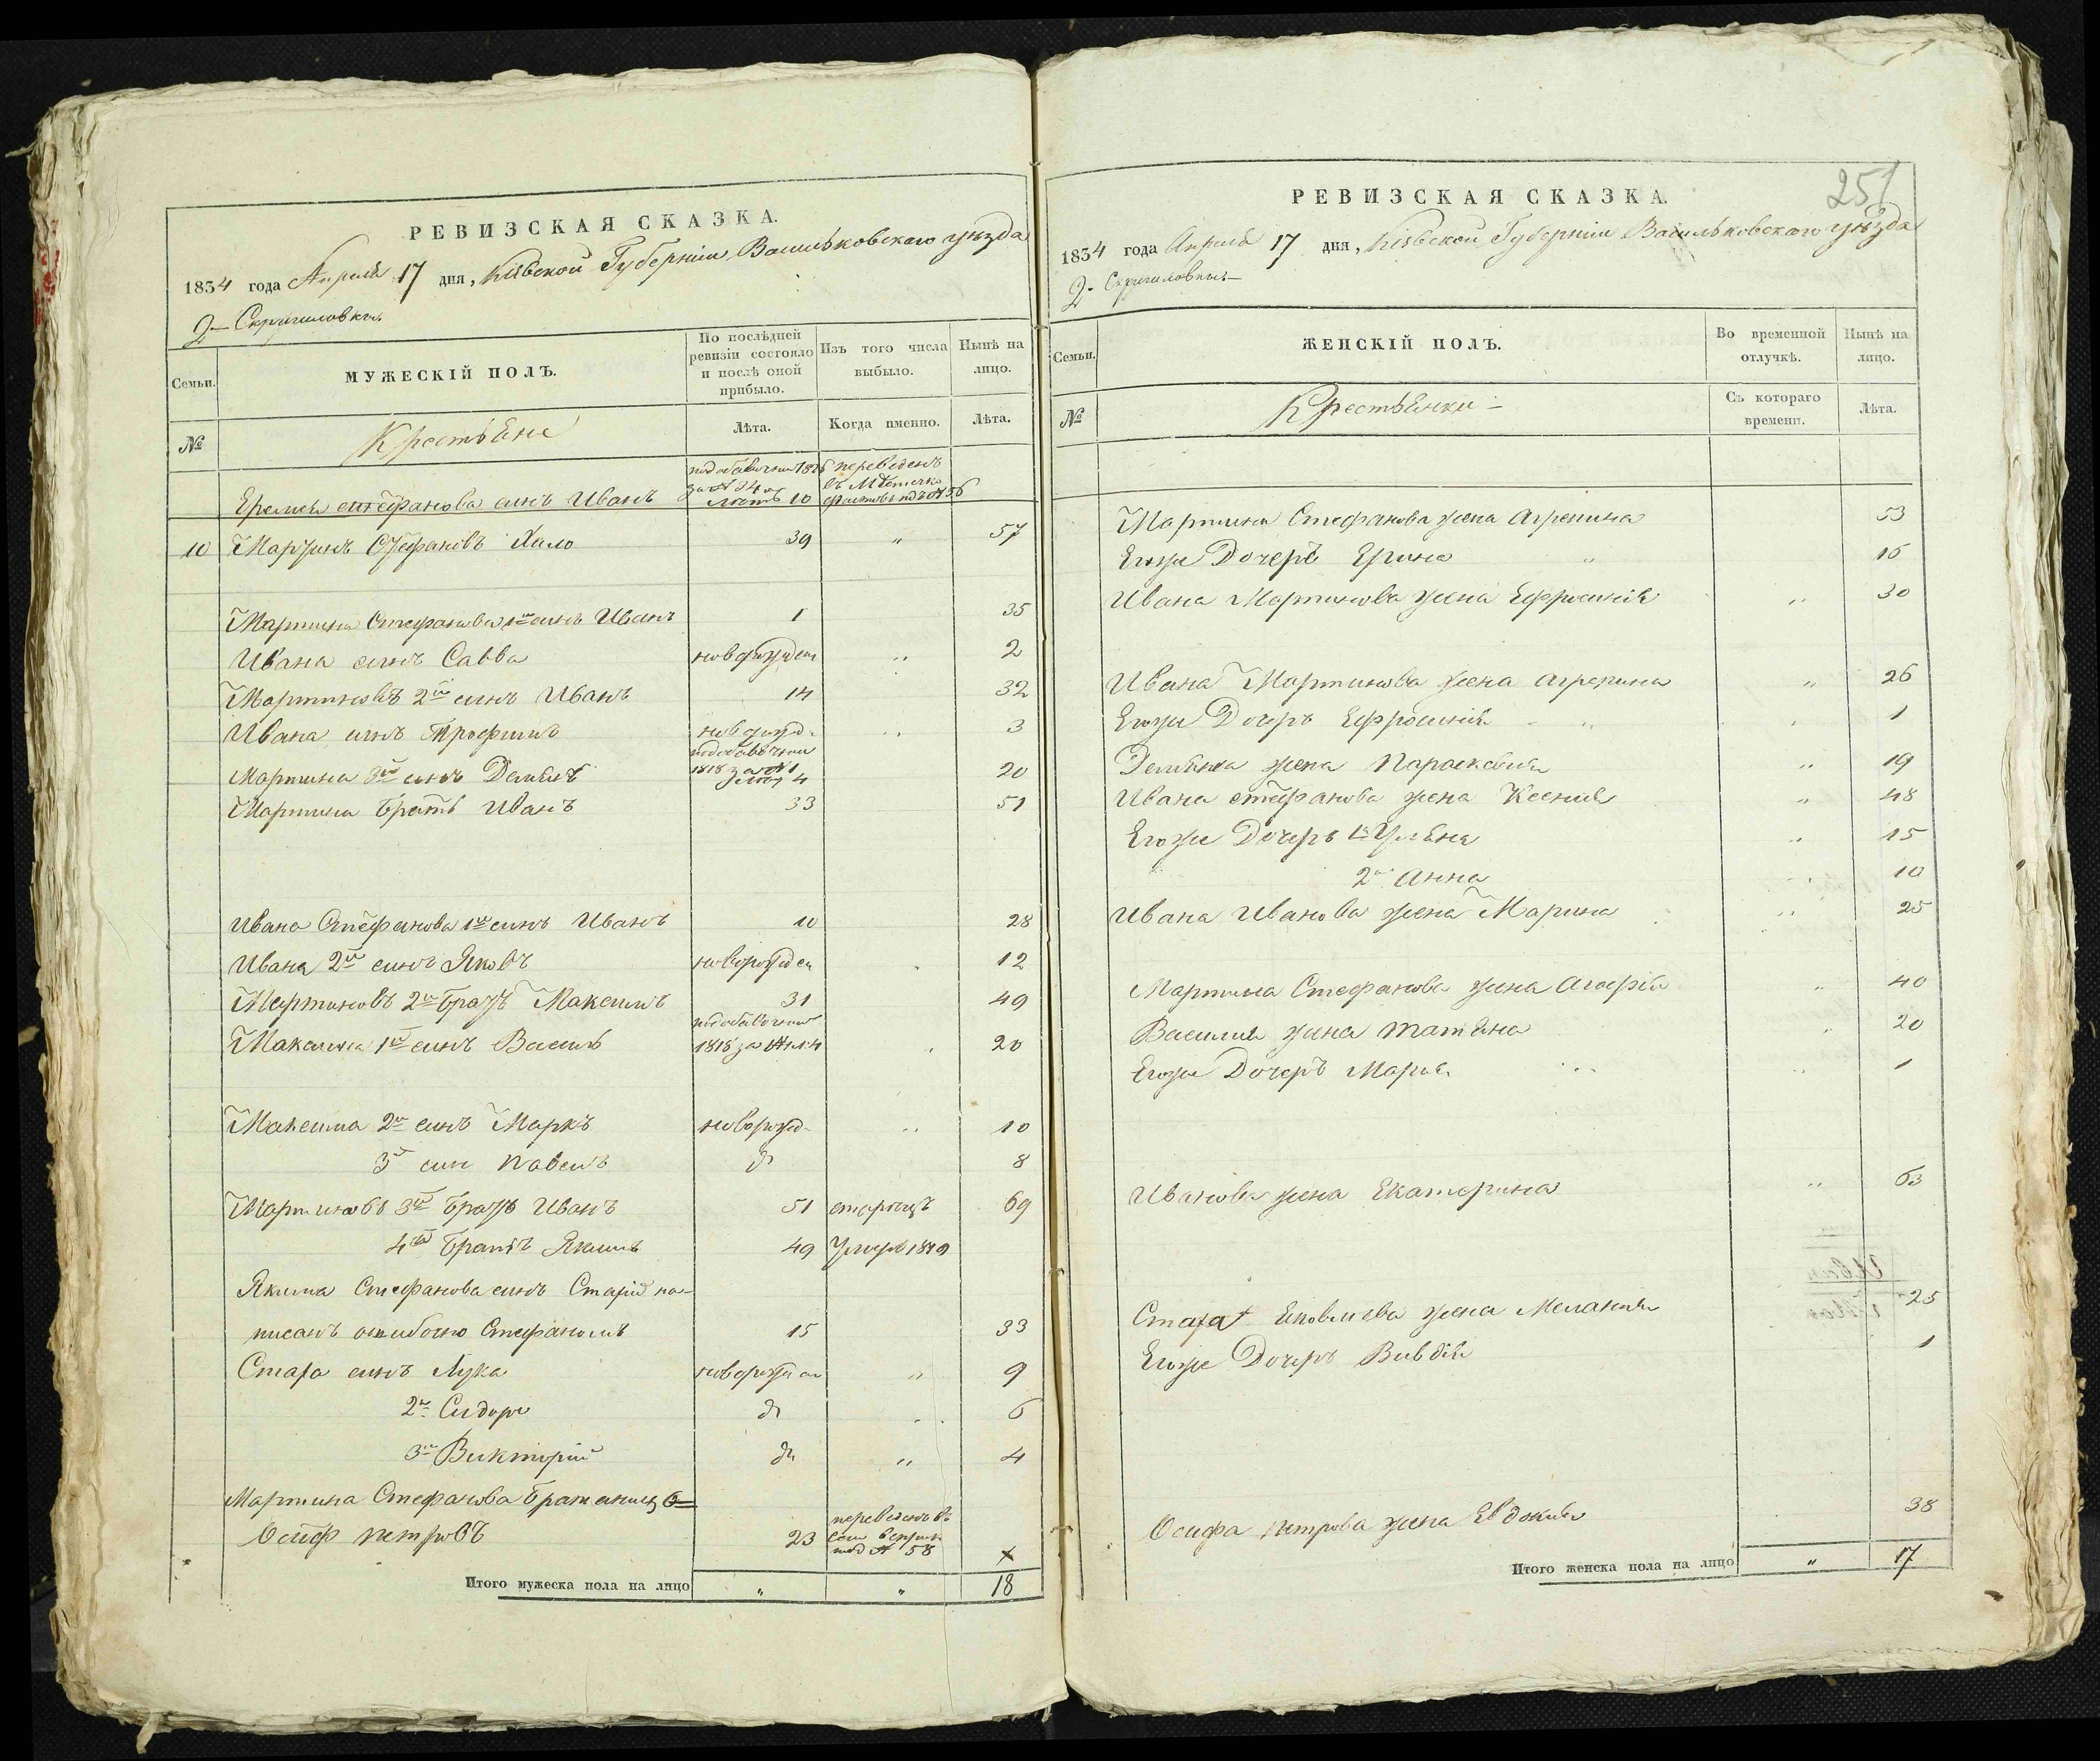 РЕВИЗСКАЯ СКАЗКА.
1834 года Апреля 17 дня, Кіевской Губерніи Васильковского уезда
Д- Скригиловки.
Семьи.
МУЖЕСКІЙ ПОЛЪ.
По послѣдней ревизіи состояло и послѣ оной прибыло.
Изъ того числа выбыло.
Нынѣ на лицо.
№
Крестьяне
Лѣта.
Когда именно.
Лѣта.
Еремея стефанова синъ Иванъ 10 переведенъ
10 Мартинъ Стефановъ Хило 39 " 57
Мартина Стефанова 1й синъ Иванъ 1 35
Ивана синъ Савва новорожден 2
Мартиновъ 2й синъ Иванъ 14 32
Ивана синъ Трофимъ новорожд. 3
Мартина 3й синъ Демьянъ 1818 4 20
Мартина братъ Иванъ 33 51
Ивана Стефанова 1й синъ Иванъ 10 28
Ивана 2й синъ Яковъ новорожден 12
Мартиновъ 2й братъ Максимъ 31 49
Максима 1й синъ Василь 1818 20
Максима 2й синъ Маркъ новорожд 10
3й син Павелъ д 8
Мартиновъ 3й братъ Иванъ 51 69
4й братъ Якимъ 49 Умеръ 1819
Якима Стефанова синъ Старій на-
писанъ ошибочно Стефаномъ 15 33
Стаха синъ Лука новорожден " 9
2й Сидоръ д 6
3й Викторій д " 4
Мартина Стефанова
Осиф петровъ 23 58
Итого мужеска пола на лицо " " 18
РЕВИЗСКАЯ СКАЗКА.
251
1834 года Апреля 17 дня, Кіевской Губерніи Васильковского уезда
Д- Скригиловки.-
Семьи.
ЖЕНСКІЙ ПОЛЪ.
Во временной отлучкѣ.
Нынѣ на лицо.
№
Крестьянки -
Съ котораго времени.
Лѣта.
Мартина Стефанова жена Агрепина 53
Егоже Дочеръ Ерина " 16
Ивана Мартинова жена Ефросинія " 30
Ивана Мартинова жена Агрепина " 26
Егоже Дочеръ Ефросинія 1
Демьяна жена Параскевия " 19
Ивана стефанова жена Ксения " 48
Егоже Дочеръ 1я Ульяна " 15
2я Анна 10
Ивана Иванова жена Марина " 25
Мартина Стефанова жена Агафія " 40
Василия жена Татьяна 20
Егоже Дочеръ Мария 1
Иванова жена Екатерина " 63
Яковлева жена Мелания 25
Егоже Дочеръ Вивдія 1
Осифа петрова жена Евдокия 38
Итого женска пола на лицо " 17